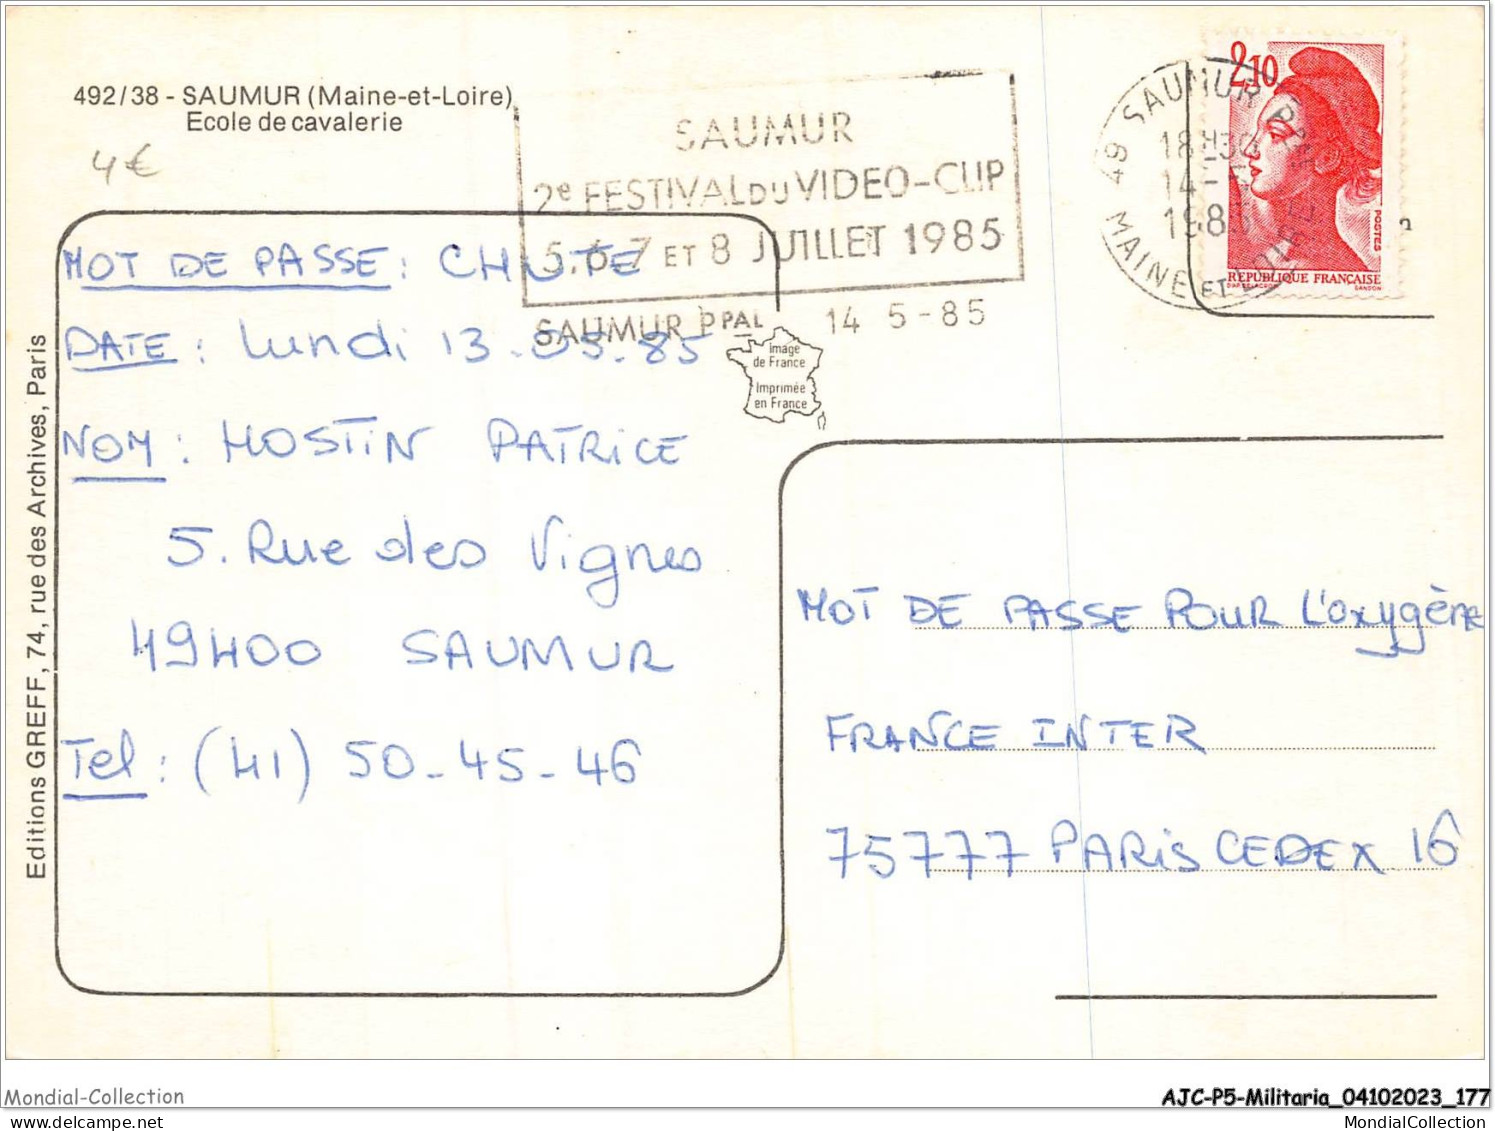 492/38 - SAUMUR (Maine-et-Loire)
Ecole de cavalerie
4€
SAUMUR
2e FESTIVAL DU VIDEO-CLIP
5.6.7 ET 8 JUILLET 1985
SAUMUR PPAL 14 5-85
49 SAUMUR PPAL
18H30
14-5
1985
MAINE ET LOIRE
2,10
POSTES
REPUBLIQUE FRANÇAISE
D'AP. DELACROIX GANDON
MOT DE PASSE : CHUTE
DATE : Lundi 13-05-85
NOM : HOSTIN PATRICE
5. Rue des Vignes
49400 SAUMUR
Tel : (41) 50-45-46
image
de France
Imprimée
en France
MOT DE PASSE POUR L'oxygène
FRANCE INTER
75777 PARIS CEDEX 16
Editions GREFF, 74, rue des Archives, Paris
Mondial-Collection
AJC-P5-Militaria_04102023_177
MondialCollection